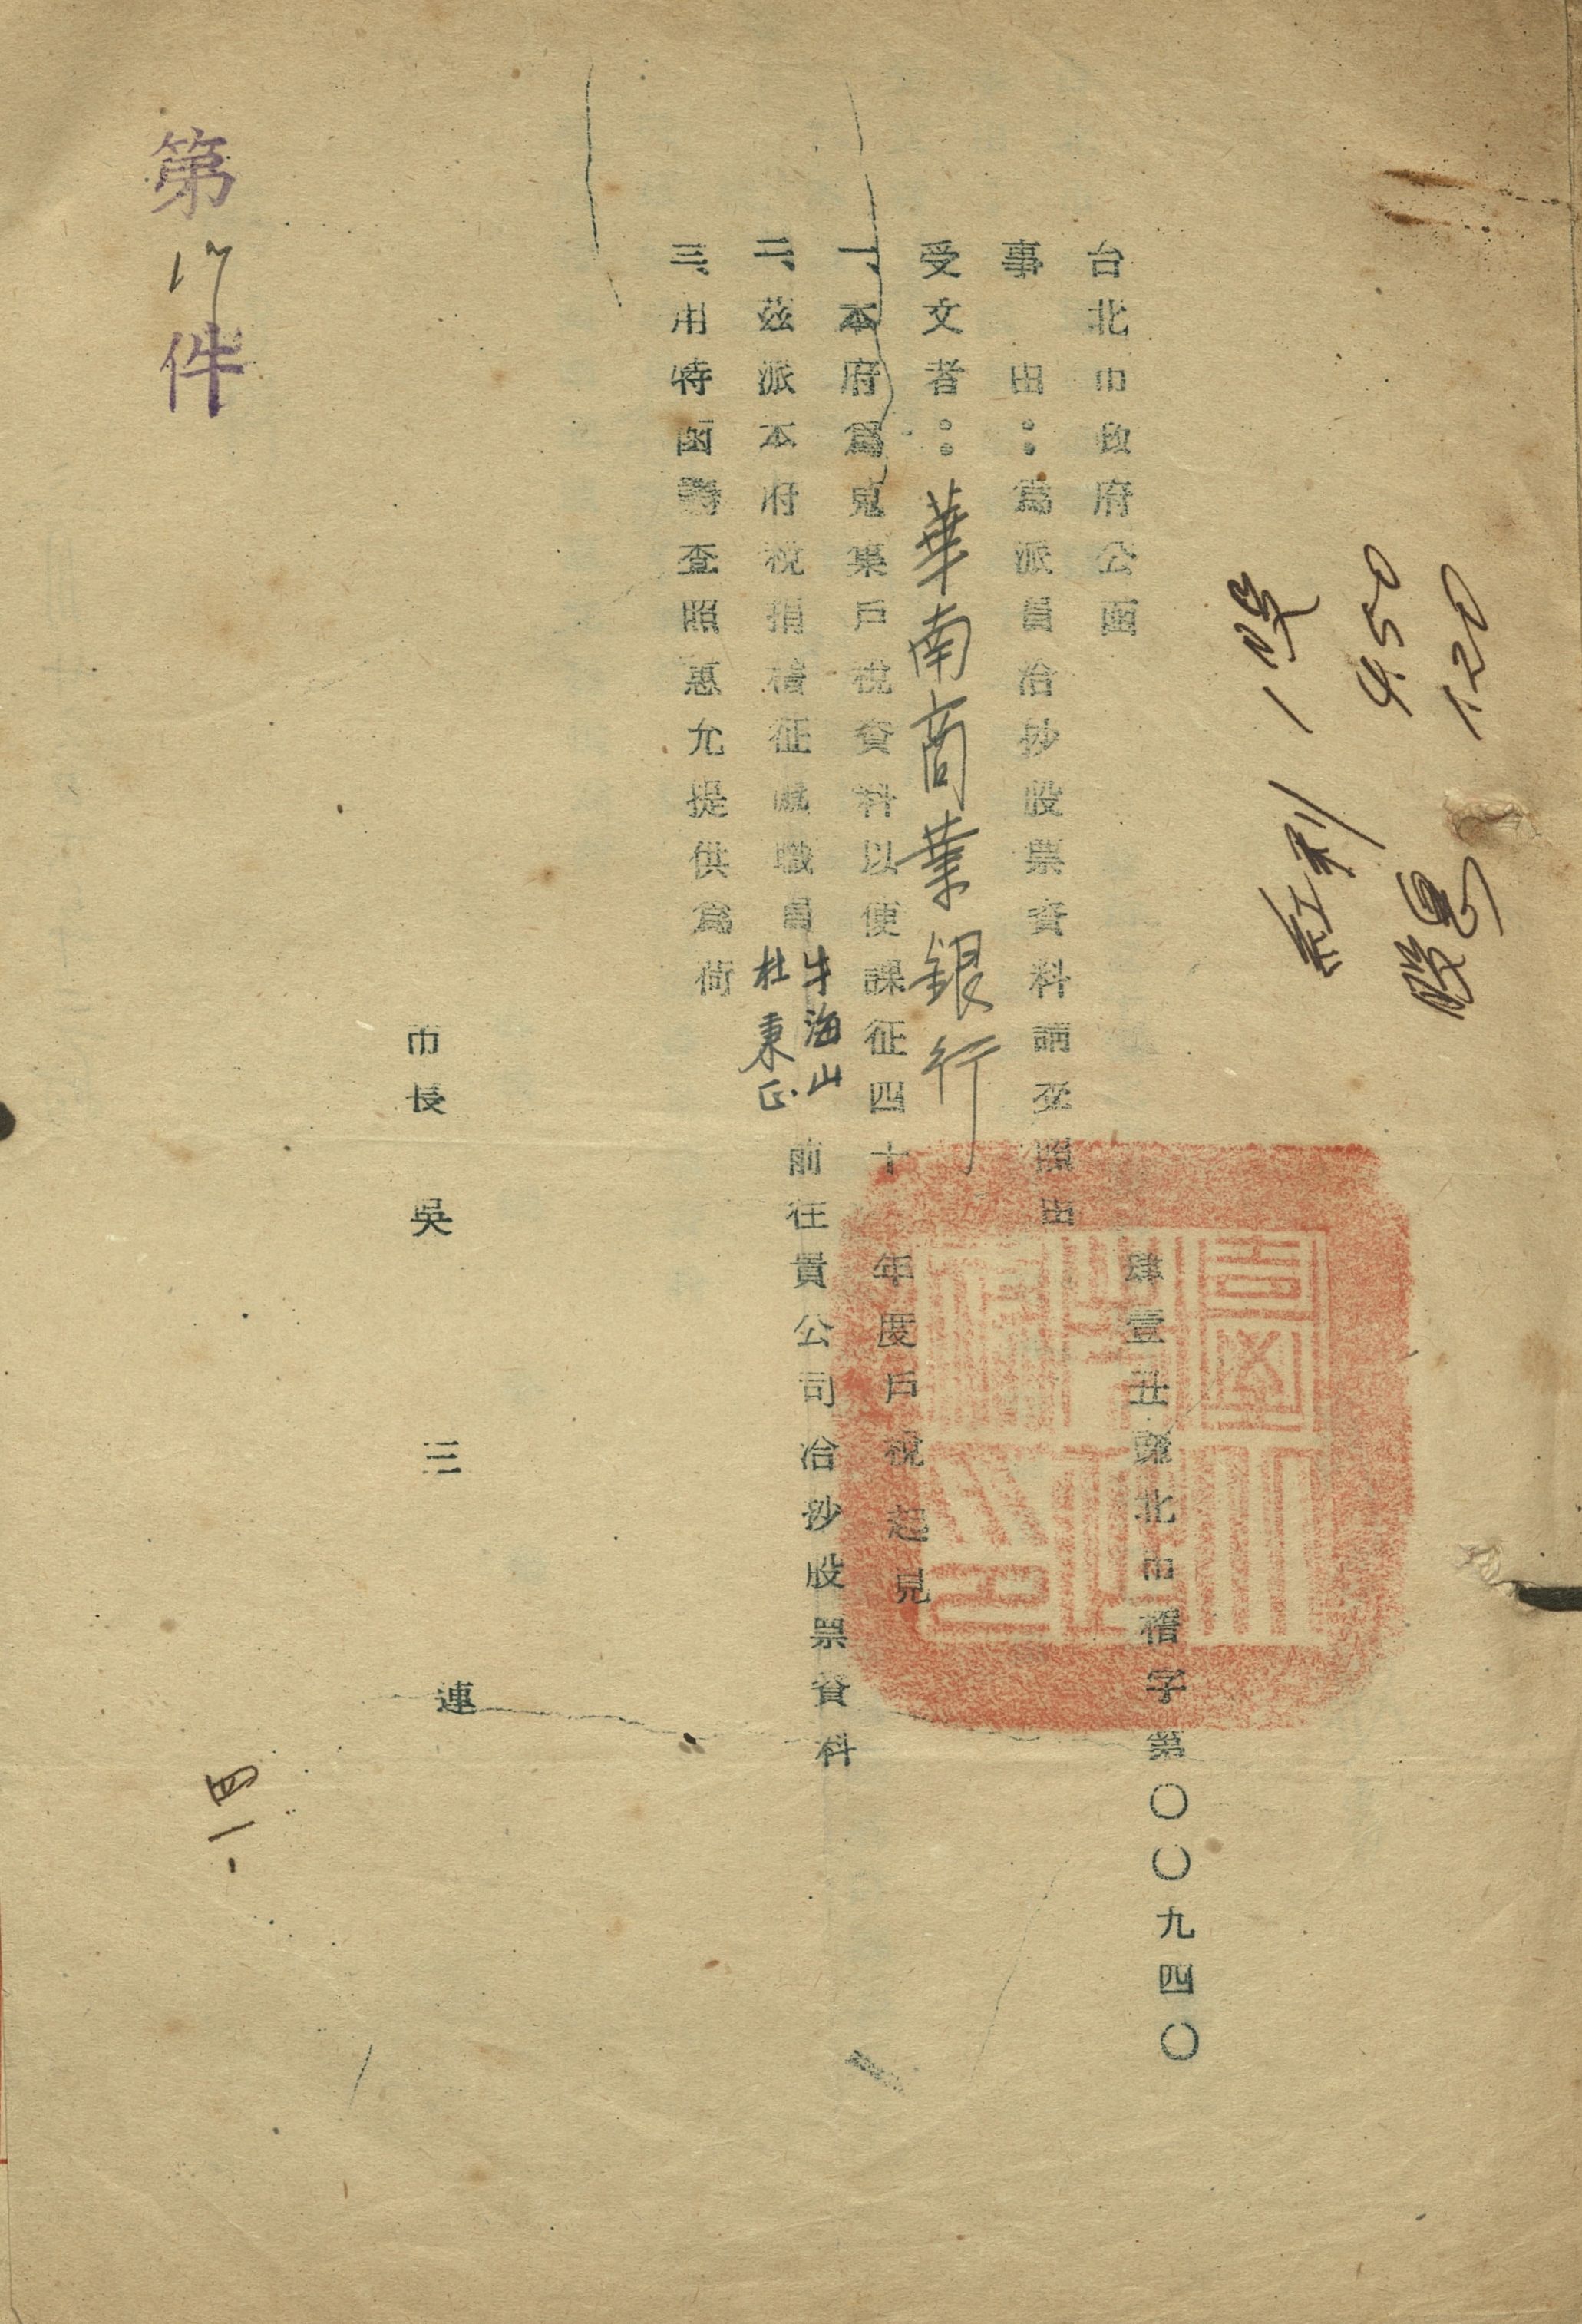 股息 120
紅利 450
1股
台北市政府公函
肆壹丑 北市稽字第〇〇九四〇
事　由：為派員洽抄股票資料請查照由
受文者：華南商業銀行
一、本府為蒐集戶稅資料以便課征四十　年度戶稅起見
二、茲派本府稅捐稽征處職員牛海山 杜秉正 前往貴公司洽抄股票資料
三、用特函請查照惠允提供為荷
市長　吳　三　連
第17件